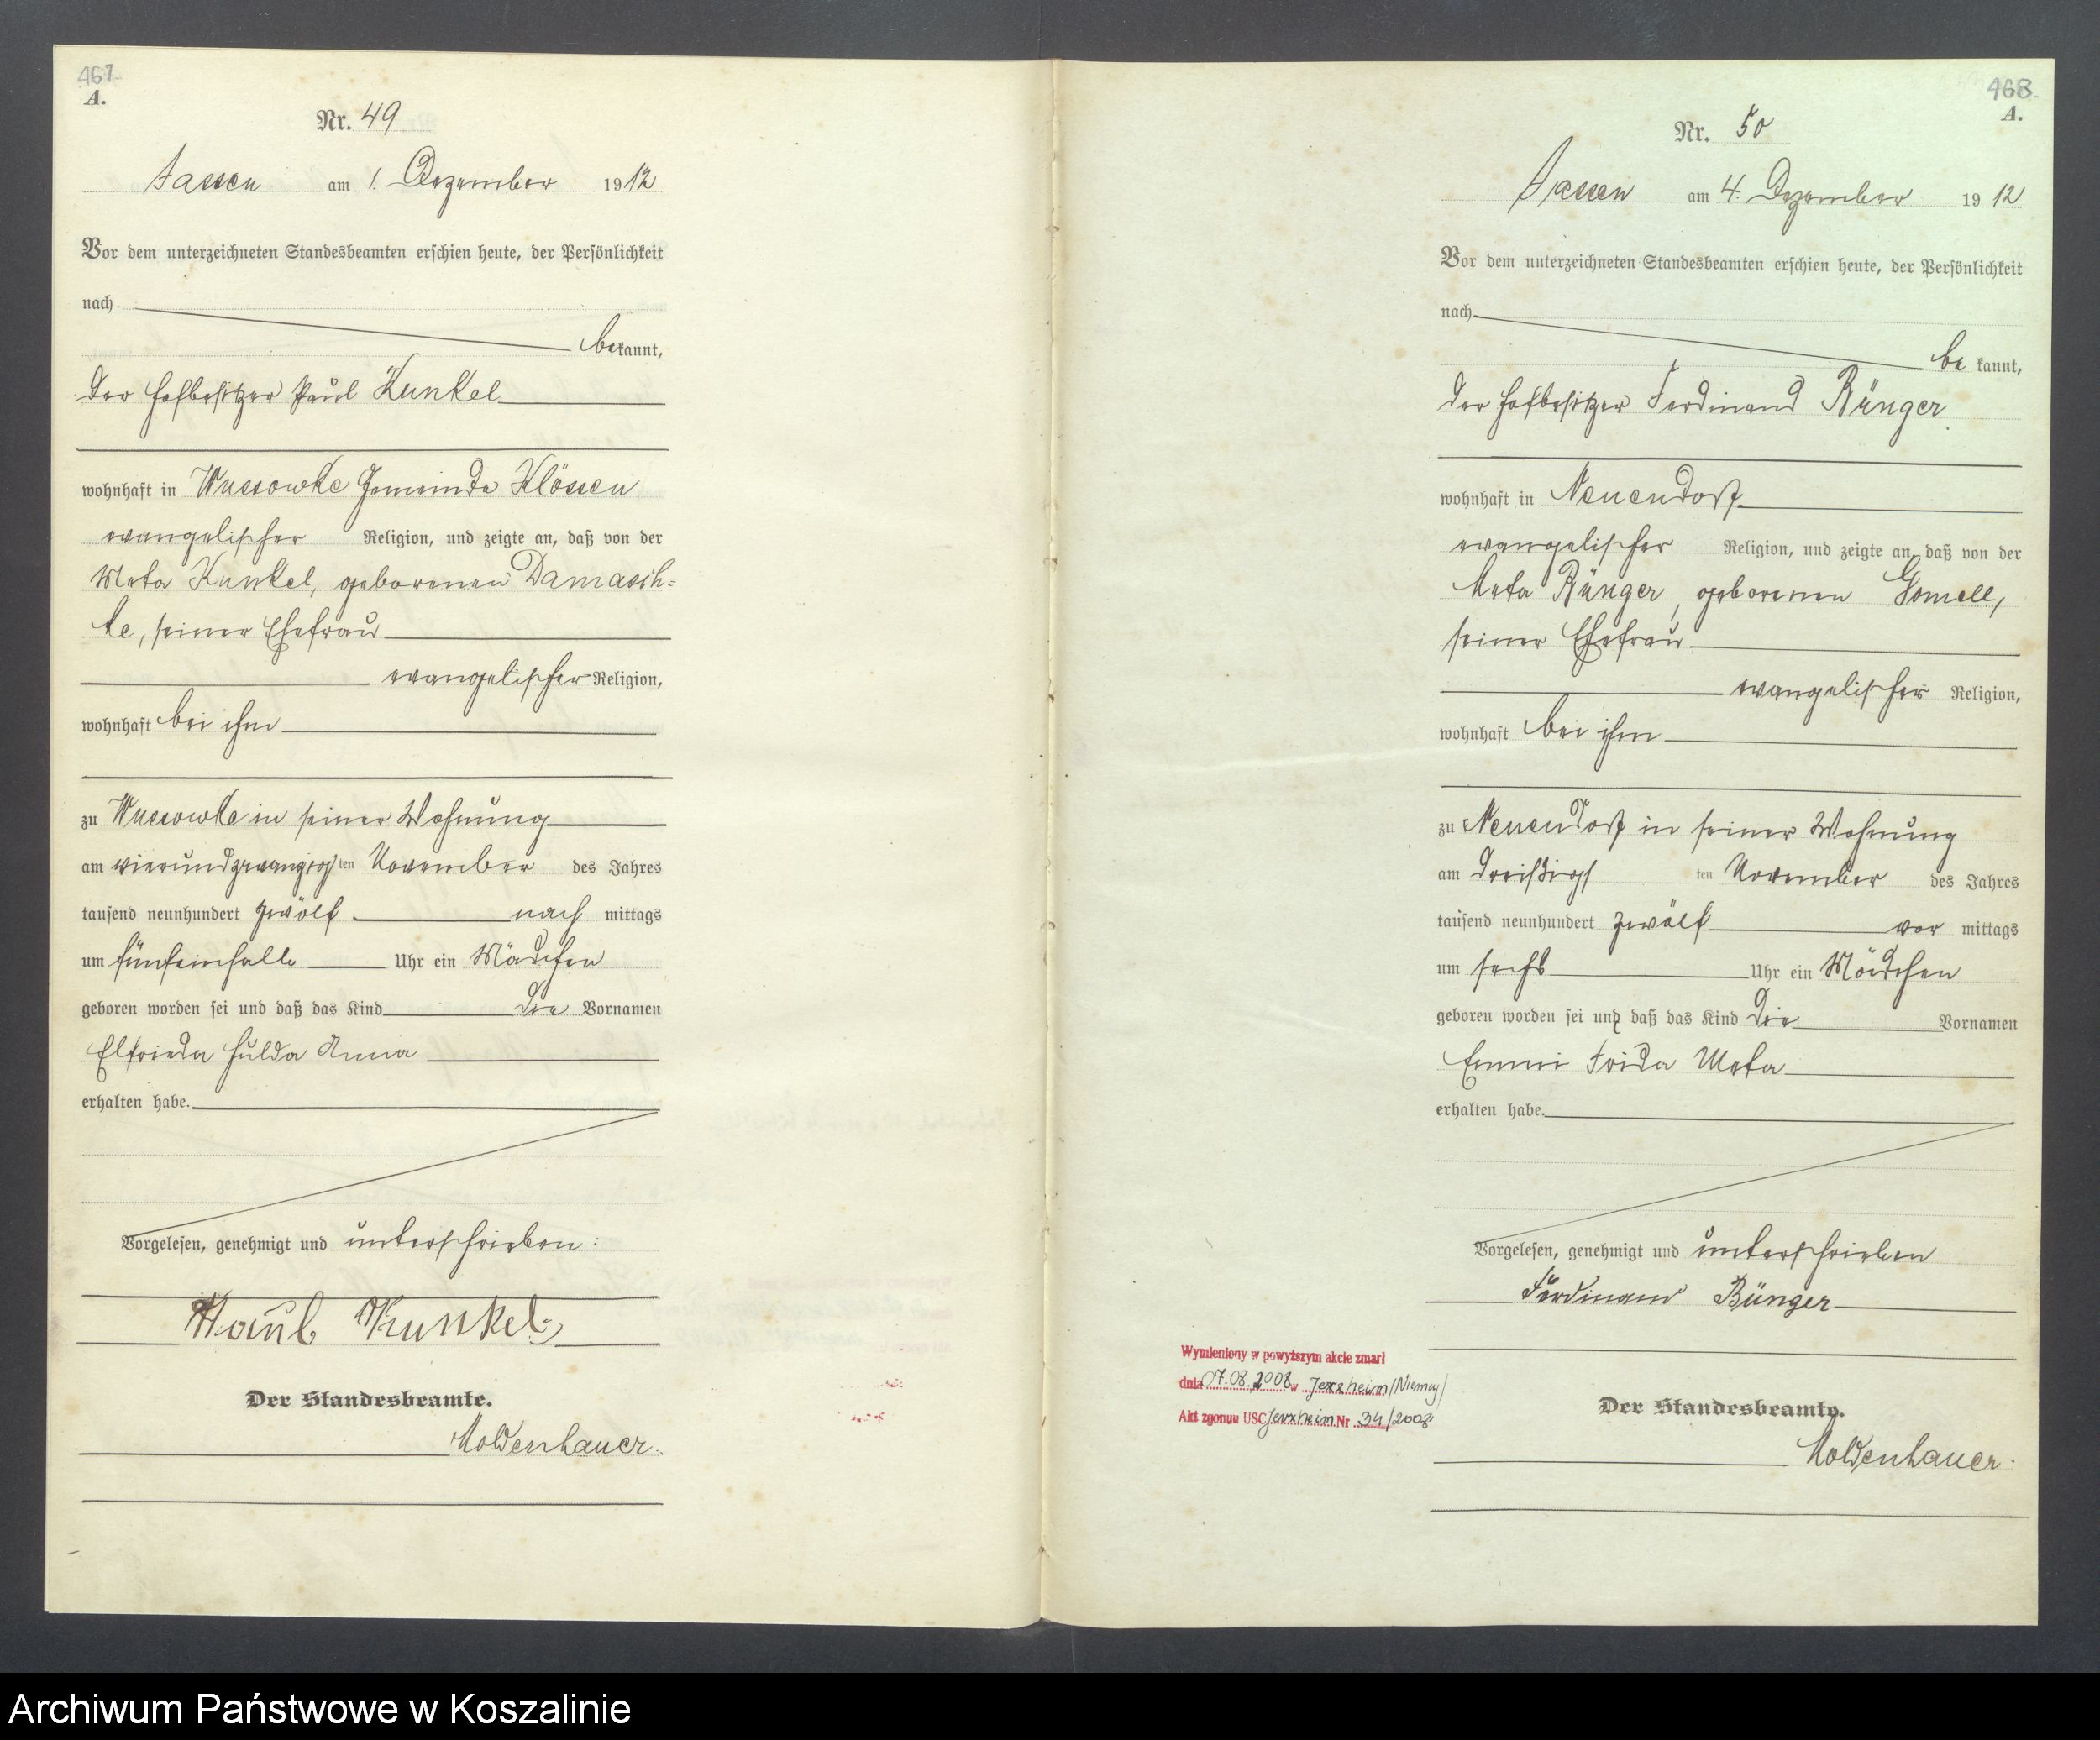 467
A.
Nr. 49
Jassen am 1. Dezember 1912
Vor dem unterzeichneten Standesbeamten erschien heute, der Persönlichkeit
nach
bekannt,
der Hofbesitzer Paul Kunkel
wohnhaft in Wussowke Gemeinde Klössen
evangelischer Religion, und zeigte an, daß von der
Meta Kunkel, geborenen Damasch=
ke, seiner Ehefrau
evangelischer Religion,
wohnhaft bei ihm
zu Wussowke in seiner Wohnung
am vierundzwanzigsten November des Jahres
tausend neunhundert zwölf nach mittags
um fünfeinhalb Uhr ein Mädchen
geboren worden sei und daß das Kind die Vornamen
Elfrieda Hulda Anna
erhalten habe.
Vorgelesen, genehmigt und unterschrieben:
Paul Kunkel
Der Standesbeamte.
Moldenhauer.
468
A.
Nr. 50
Jassen am 4. Dezember 1912
Vor dem unterzeichneten Standesbeamten erschien heute, der Persönlichkeit
nach
be kannt,
der Hofbesitzer Ferdinand Bünger
wohnhaft in Neuendorf
evangelischer Religion, und zeigte an, daß von der
Meta Bünger, geborenen Gomell,
seiner Ehefrau
evangelischer Religion,
wohnhaft bei ihm
zu Neuendorf in seiner Wohnung
am dreißigsten November des Jahres
tausend neunhundert zwölf vor mittags
um sechs Uhr ein Mädchen
geboren worden sei und daß das Kind die Vornamen
Emmi Frida Meta
erhalten habe.
Vorgelesen, genehmigt und unterschrieben
Ferdinand Bünger
Wymieniony w powyższym akcie zmarł
dnia 07.08.2008 w Jerxheim/Niemcy/
Akt zgonuu USC Jerxheim Nr 34/2008
Der Standesbeamte.
Moldenhauer.
Archiwum Państwowe w Koszalinie